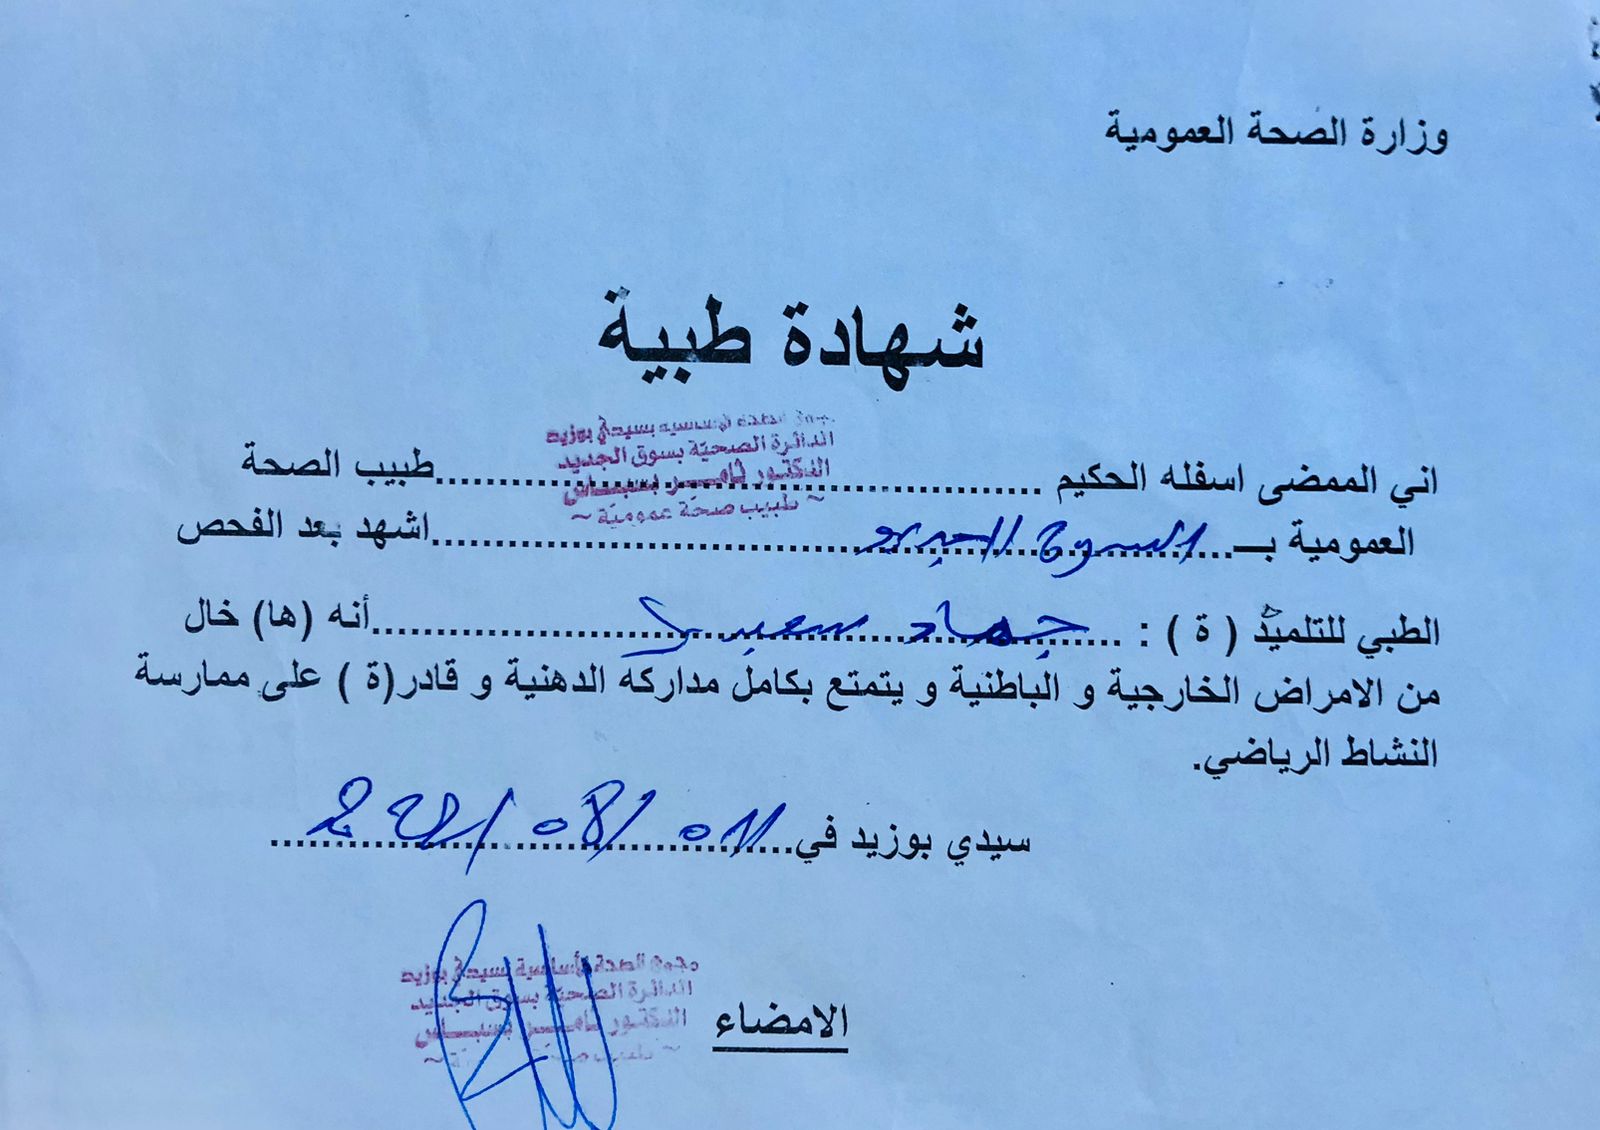 وزارة الصحة العمومية
شهادة طبية
مجمع الصحة الأساسية بسيدي بوزيد
الدائرة الصحيّة بسوق الجديد
الدكتور ثامـــر بسبـــاس
~ طبيب صحة عموميّة ~
اني الممضى اسفله الحكيم ........................................ طبيب الصحة
العمومية بـ... السوق الجديد ........................... اشهد بعد الفحص
الطبي للتلميذ ( ة ) : ... جهاد سعيدي ........................ أنه (ها) خال
من الامراض الخارجية و الباطنية و يتمتع بكامل مداركه الدهنية و قادر(ة ) على ممارسة
النشاط الرياضي.
سيدي بوزيد في... 01/08/22
مجمع الصحة الأساسية بسيدي بوزيد
الدائرة الصحيّة بسوق الجديد
الدكتور ثامـــر بسبـــاس
الامضاء